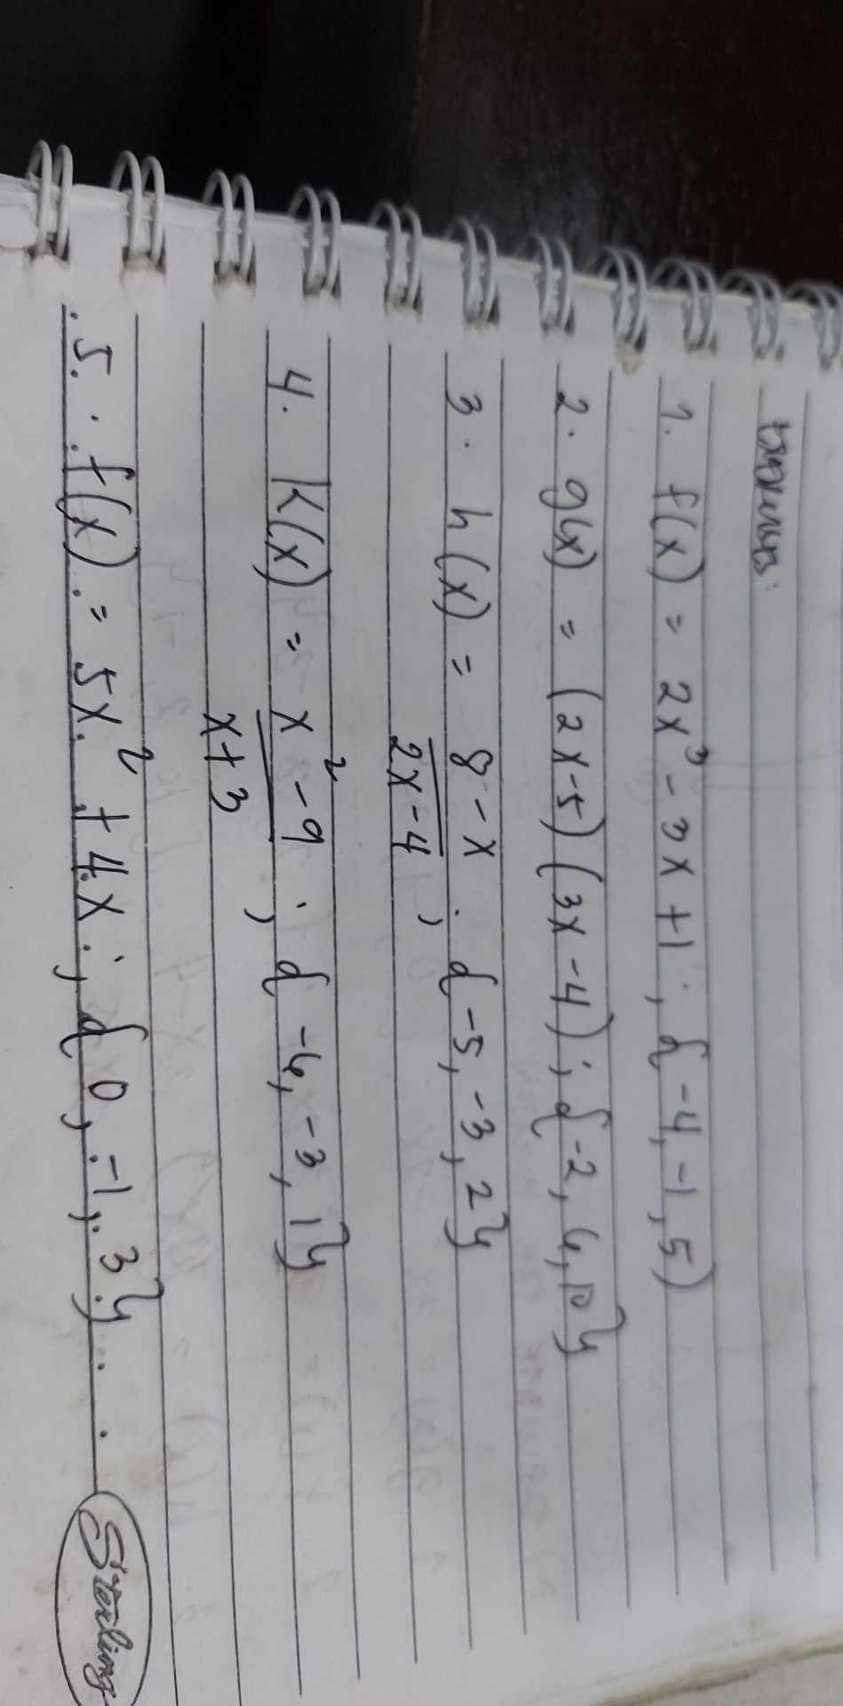 1. f(x) = 2x³ - 3x + 1 ; { -4, -1, 5)
2. g(x) = (2x-5) (3x-4) ; { -2, 6, 10}
3. h(x) = 8 - x ; { -5, -3, 2}
2x - 4
4. k(x) = x² - 9 ; { -6, -3, 1}
x + 3
5. f(x) = 5x² + 4x ; { 0, -1, 3}
Sterling